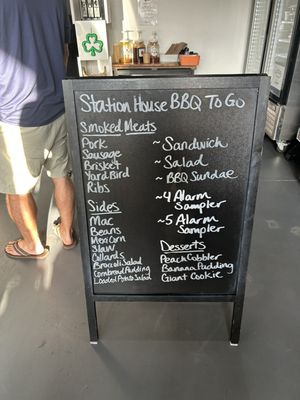 Station House BBQ To Go
Smoked Meats
Pork
Sausage
Brisket
Yard Bird
Ribs
Sides
Mac
Beans
Mex Corn
Slaw
Collards
Broccoli Salad
Cornbread Pudding
Loaded Potato Salad
~ Sandwich
~ Salad
~ BBQ Sundae
~ 4 Alarm
Sampler
~ 5 Alarm
Sampler
Desserts
Peach Cobbler
Banana Pudding
Giant Cookie